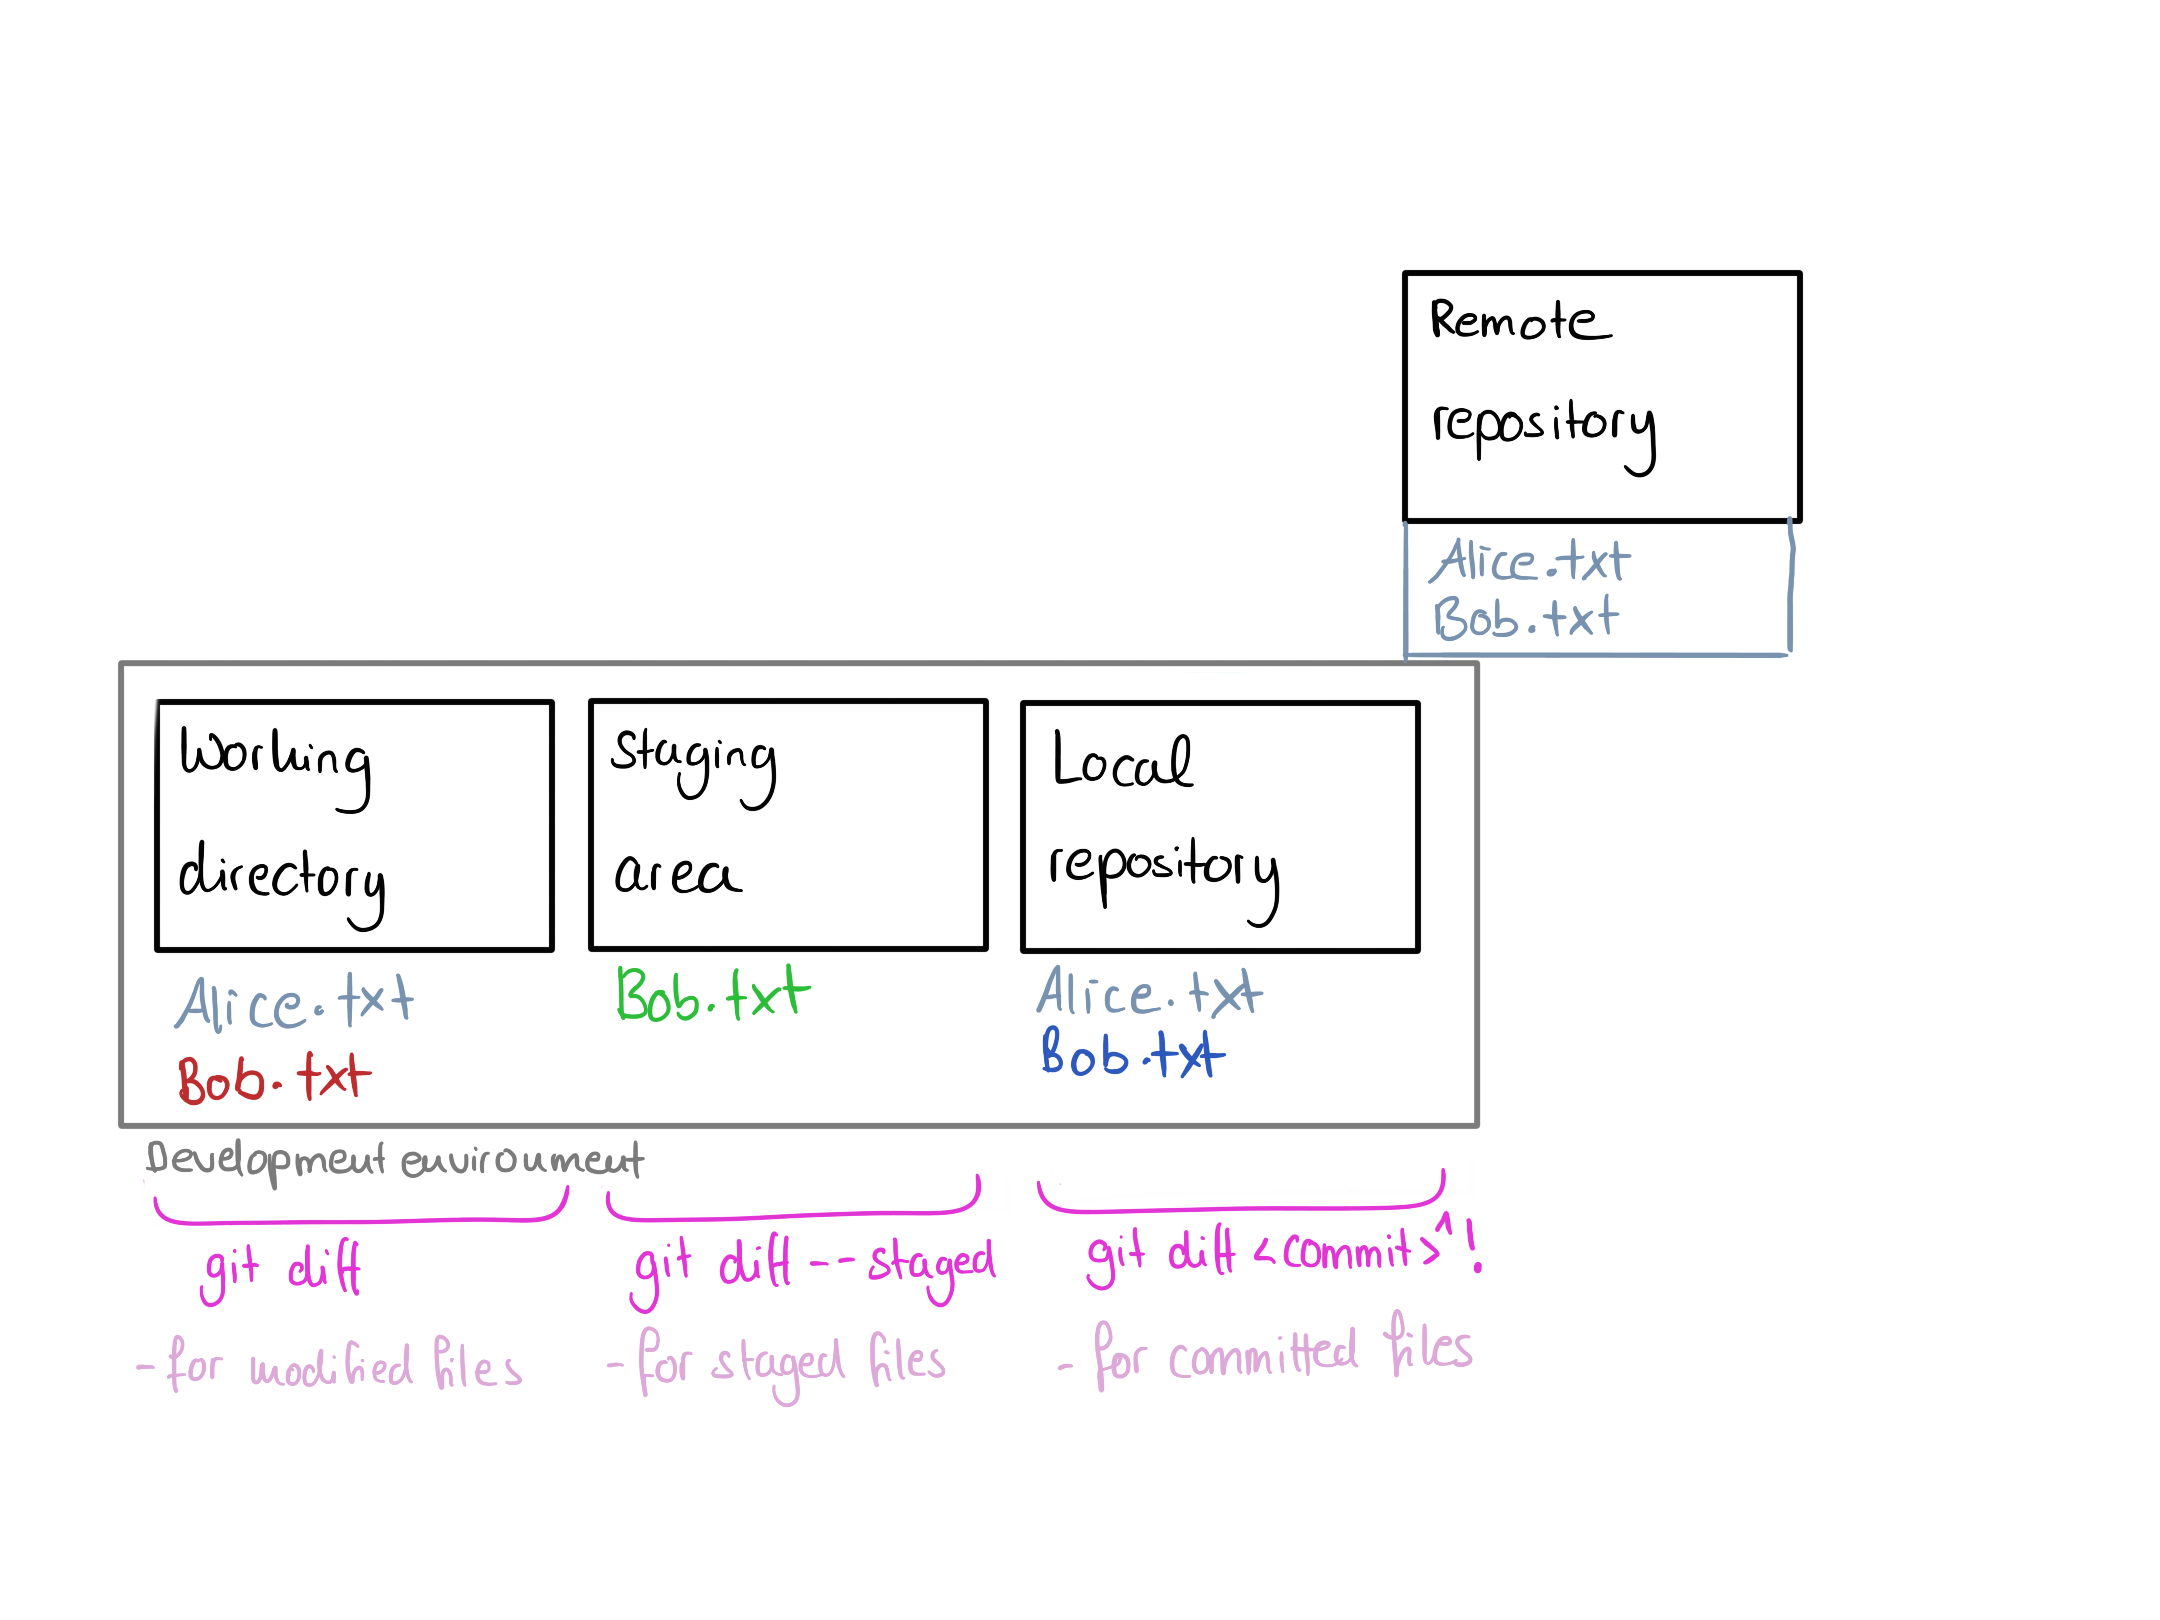 Remote
repository
Alice.txt
Bob.txt
Working
directory
Alice.txt
Bob.txt
Staging
area
Bob.txt
Local
repository
Alice.txt
Bob.txt
Development environment
git diff
- for modified files
git diff --staged
- for staged files
git diff <commit>^!
- for committed files